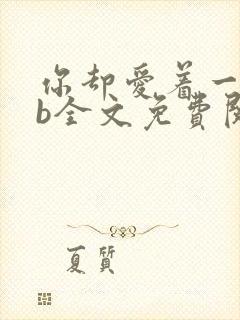 你却爱着一
b全文免費閱
夏質